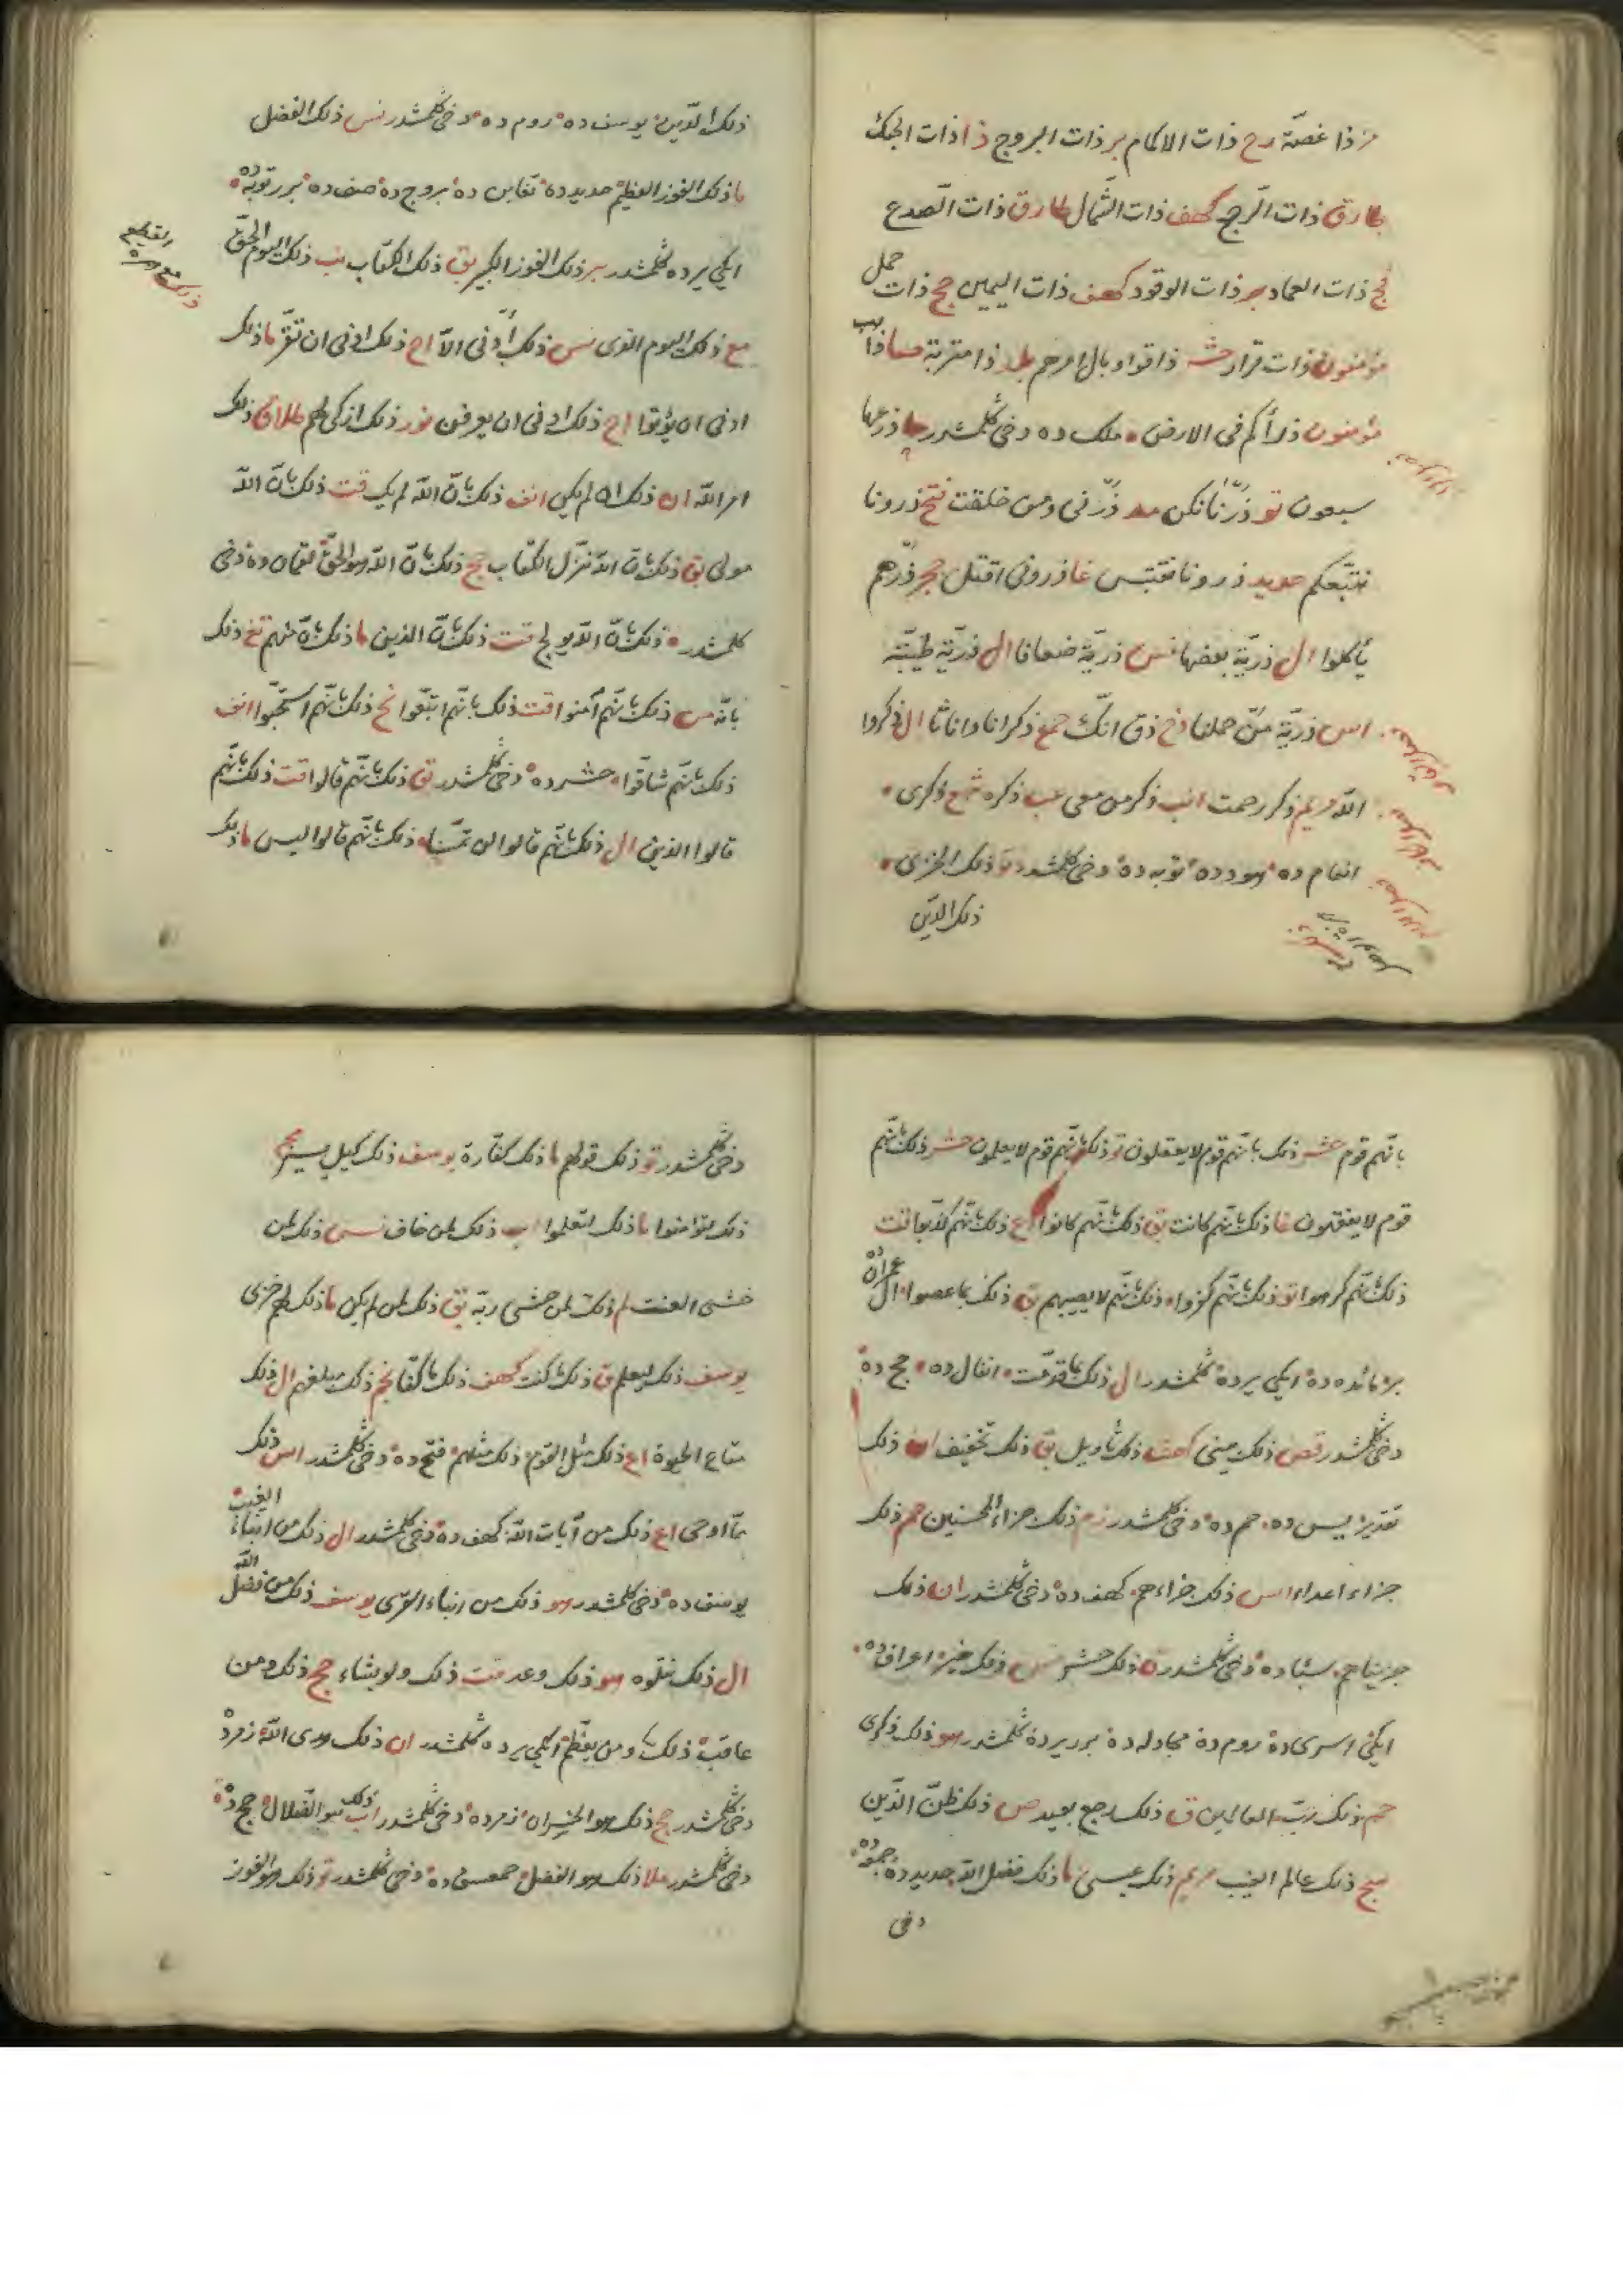 مز ذا غصّة رح ذات الاكمام بر ذات البروج ذا ذات الحبك
طارق ذات الرّجع كهف ذات الشّمال طارق ذات الصّدع
فج ذات العماد بر ذات الوقود كهف ذات اليمين حج ذات حمل
مؤمنون ذات قرار حشر ذاقوا وبال امرهم بلد ذا متربة
مؤمنون ذرأكم فى الارض ملك ده دخى كلمشدر حا ذرعها
سبعون تو ذرنا نكن مد ذرنى ومن خلقت فتح ذرونا
نتبعكم حديد ذرونا نقتبس غا ذرونى اقتل حجر ذرهم
يأكلوا ال ذريّة بعضها نس ذريّة ضعافا ال ذريّة طيّبة
اس ذريّة من حملنا دخ ذق انّك جمع ذكرانا واناثا ال ذكروا
الله مريم ذكر رحمت انب ذكر من معى عب ذكره ذكرى
انعام ده هود ده توبه ده دخى كلمشدر تو ذلك الخزى
ذلك الدّين
ذلك الدّين يوسف ده روم ده دخى كلمشدر نس ذلك الفضل
ما ذلك الفوز العظيم حديد ده تغابن ده بروج ده صف ده بر توبه ده
ايكى يرده كلمشدر بر ذلك الفوز الكبير بق ذلك الكتاب نب ذلك اليوم الحقّ
مع ذلك اليوم الذى نس ذلك أدنى الّا اح ذلك ادنى ان تقرّ ما ذلك
ادنى ان يؤتوا اح ذلك ادنى ان يعرفن نور ذلك ازكى لهم طلاق ذلك
امر الله ان ذلك ان لم يكن انف ذلك بانّ الله لم يك قت ذلك بانّ الله
مولى بق ذلك بانّ الله نزّل الكتاب حج ذلك بانّ الله هو الحقّ لقمان ده دخى
كلمشدر ذلك بانّ الله يولج قت ذلك بانّ الذين ما ذلك بانّ منهم تغ ذلك
بانّه من ذلك بانّهم آمنوا قت ذلك بانّهم اتّبعوا نح ذلك بانّهم استحبّوا انف
ذلك بانّهم شاقّوا حشر ده دخى كلمشدر بق ذلك بانّهم قالوا قت ذلك بانّهم
قالوا الذين ال ذلك بانّهم قالوا لن تمسّنا ذلك بانّهم قالوا ليس ما ذلك
بانّهم قوم حشر ذلك بانّهم قوم لا يعقلون تو ذلك بانّهم قوم لا يعلمون حشر ذلك بانّهم
قوم لا يفقهون غا ذلك بانّهم كانت بق ذلك بانّهم كانوا اع ذلك بانّهم كذّبوا قت
ذلك بانّهم كرهوا تو ذلك بانّهم كفروا ذلك بانّهم لا يصيبهم بق ذلك بما عصوا ال عمران ده
بر مائده ده ايكى يرده كلمشدر ال ذلك بما قدّمت انفال ده حج ده
دخى كلمشدر قصص ذلك بينى كهف ذلك تأويل بق ذلك تخفيف ان ذلك
تقدير يس ده حم ده دخى كلمشدر زم ذلك جزاء المحسنين حم ذلك
جزاء اعداء اس ذلك جزاءهم كهف ده دخى كلمشدر ان ذلك
جزيناهم سبا ده دخى كلمشدر ق ذلك حشر نس ذلك خير اعراف ده
ايكى اسرى ده روم ده مجادله ده بر يرده كلمشدر هو ذلك ذكرى
حم ذلك ربّ العالمين ق ذلك رجع بعيد ص ذلك ظنّ الّذين
سج ذلك عالم الغيب مريم ذلك عيسى ما ذلك فضل الله حديد ده جمعه ده
دخى
دخى كلمشدر تو ذلك قولهم ما ذلك كفّارة يوسف ذلك كيل يسير
ذلك لتؤمنوا ما ذلك لتعلموا اب ذلك لمن خاف نس ذلك لمن
خشى العنت لم ذلك لمن خشى ربّه بق ذلك لمن لم يكن ما ذلك لهم خزى
يوسف ذلك ليعلم ق ذلك ما كنت كهف ذلك ما كنّا نجم ذلك مبلغهم ال ذلك
متاع الحيوة اع ذلك مثل القوم ذلك مثلهم فتح ده دخى كلمشدر اس ذلك
ممّا اوحى اع ذلك من آيات الله كهف ده دخى كلمشدر ال ذلك من انباء الغيب
يوسف ده دخى كلمشدر هو ذلك من انباء القرى يوسف ذلك من فضل الله
ال ذلك نتلوه هو ذلك وعد قت ذلك ولو يشاء حج ذلك ومن
عاقب ذلك ومن يعظّم ايكى يرده كلمشدر ان ذلك هدى الله زمر ده
دخى كلمشدر حج ذلك هو الخسران زمر ده دخى كلمشدر اب ذلك هو الضّلال حج ده
دخى كلمشدر ملا ذلك هو الفضل حمعسق ده دخى كلمشدر تو ذلك هو الفوز